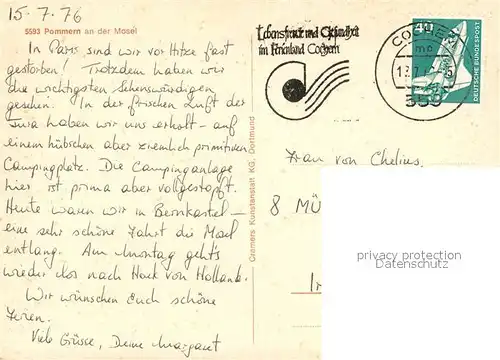 15-7-76
5593 Pommern an der Mosel
In Paris sind wir vor Hitze fast
gestorben! Trotzdem haben wir
die wichtigsten Sehenswürdigen
gesehen. In der frischen Luft der
Jura haben wir uns erholt – auf
einem hübschen aber ziemlich primitiven
Campingplatz. Die Campinganlage
hier ist prima aber vollgestopft.
Heute waren wir in Bernkastel –
eine sehr schöne Fahrt die Mosel
entlang. Am Montag geht's
wieder los nach Hoek von Holland.
Wir wünschen Euch schöne
Ferien.
Viele Grüsse, Deine Margaret
Cramers Kunstanstalt KG, Dortmund
Lebensfreude und Gesundheit
im Ferienland Cochem
COCHEM
559
40
DEUTSCHE BUNDESPOST
Frau von Chelius
8 MÜ
privacy protection
Datenschutz